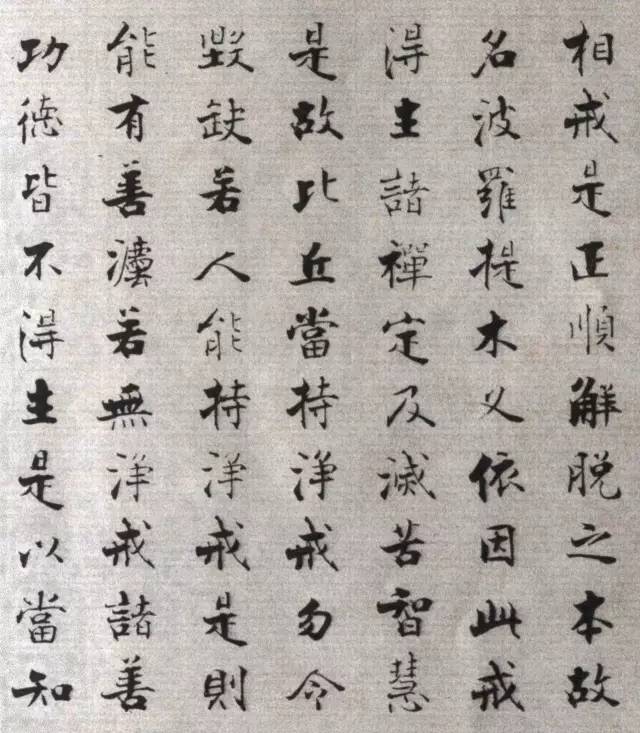 相戒是正順解脫之本故
名波羅提木叉依因此戒
得生諸禪定及滅苦智慧
是故比丘當持淨戒勿令
毀缺若人能持淨戒是則
能有善灋若無淨戒諸善
功德皆不得生是以當知